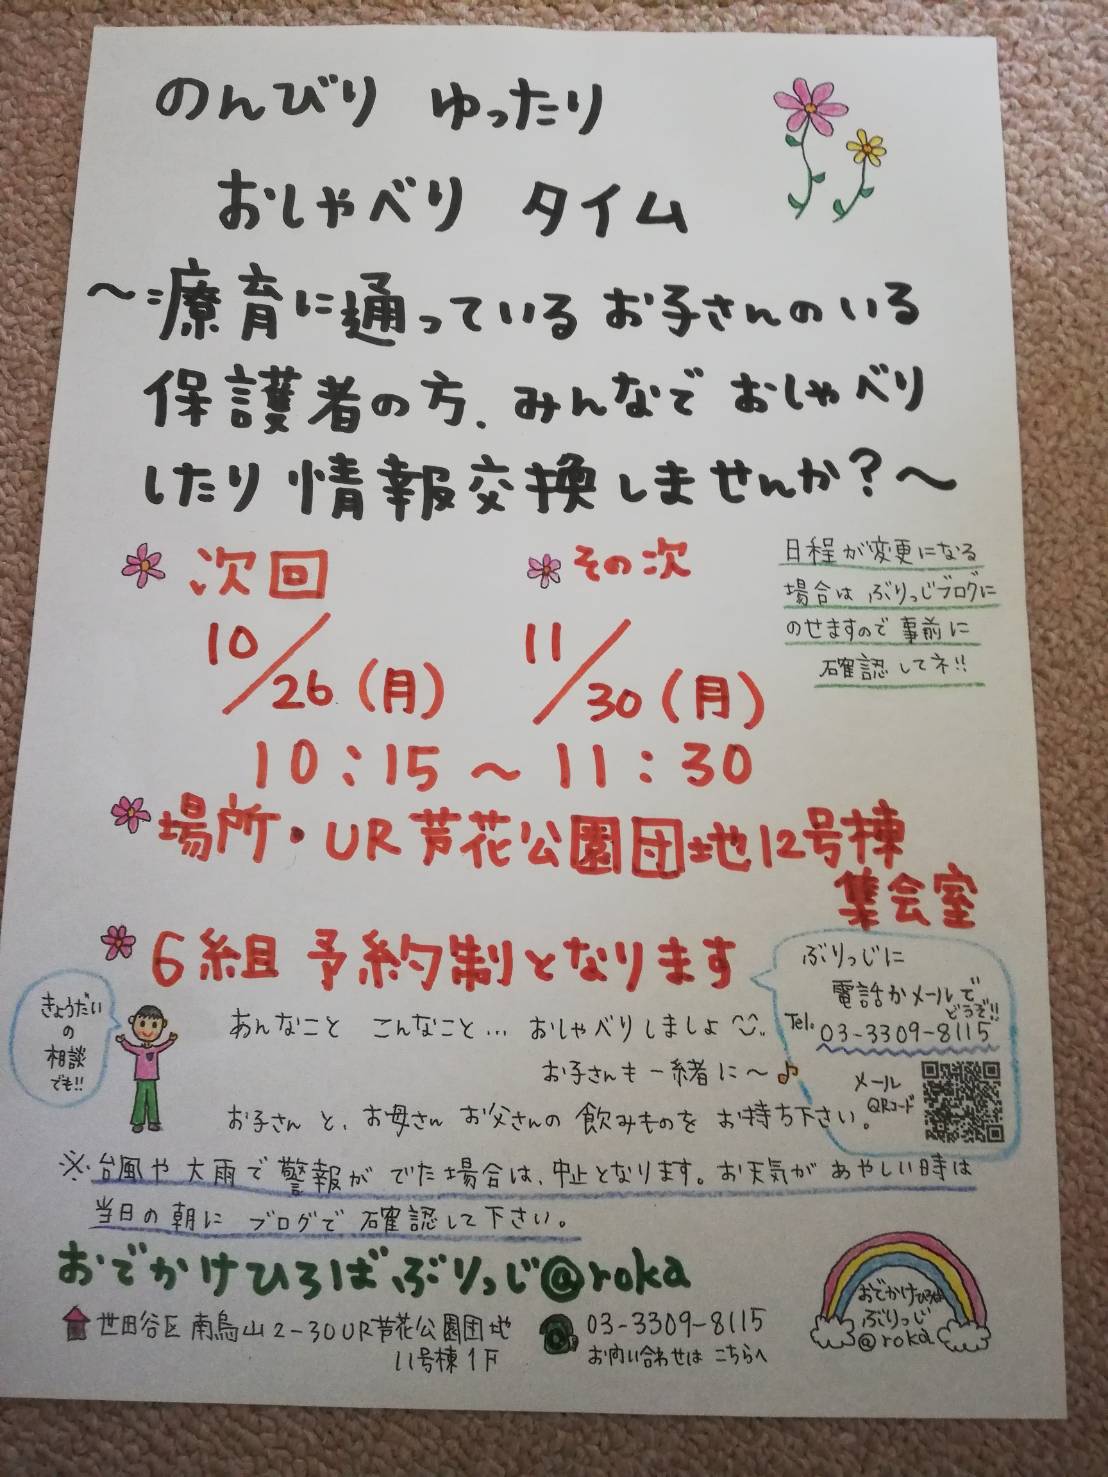 のんびり ゆったり
おしゃべり タイム
〜療育に通っているお子さんのいる
保護者の方、みんなでおしゃべり
したり情報交換しませんか?〜
次回
10/26(月)
その次
11/30(月)
10:15〜11:30
日程が変更になる
場合はぶりっじブログに
のせますので事前に
確認してネ!!
場所・UR芦花公園団地12号棟
集会室
6組 予約制となります
ぶりっじに
電話かメールで
どうぞ!!
Tel. 03-3309-8115
メール
QRコード
きょうだい
の
相談
でも!!
あんなこと こんなこと… おしゃべりしましょ
お子さんも一緒に〜♪
お子さんと、お母さんお父さんの飲みものをお持ち下さい。
※台風や大雨で警報がでた場合は、中止となります。お天気があやしい時は
当日の朝に ブログで確認して下さい。
おでかけひろばぶりっじ@roka
世田谷区南烏山2-30UR芦花公園団地
11号棟1F
03-3309-8115
お問い合わせはこちらへ
おでかけひろば
ぶりっじ
@roka